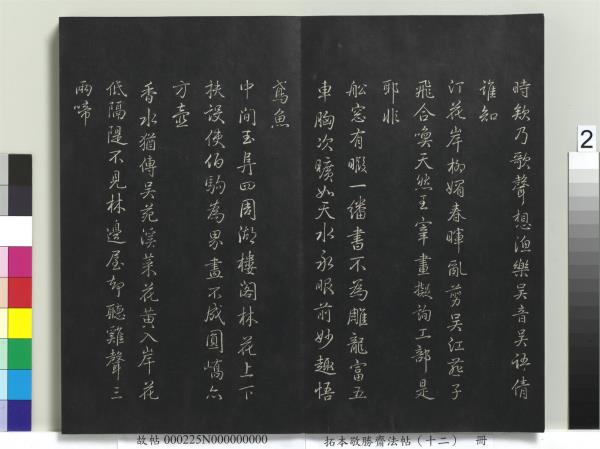 時欸乃歌聲想漁樂吳音吳語倩
誰知
汀花岸柳媚春暉亂剪吳江燕子
飛合喚天然王宰畫擬詢工部是
耶非
舩窓有暇一繙書不為雕龍富五
車胸次曠如天水永眼前妙趣悟
鳶魚
中間玉舁四周湖樓閣林花上下
扶設使伯駒為界畫不成圓嶠亦
方壺
香水猶傳吳苑溪菜花黃入岸花
低隔隄不見林邊屋却聽雞聲三
兩啼
2
故帖 000225N000000000
拓本敬勝齋法帖（十二） 冊